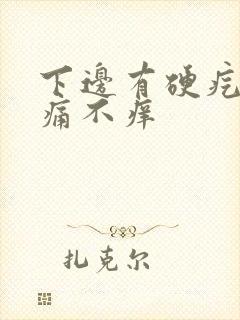 下邊有硬疙
痛不癢
扎克尔